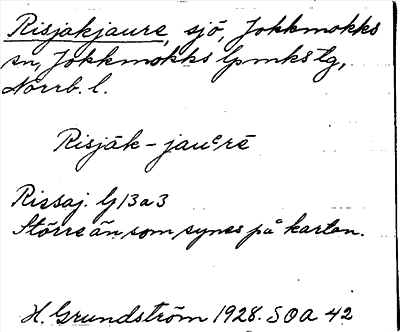 Risjakjaure, sjö, Jokkmokks
sn, Jokkmokks lpmks tg,
Norrb. l.
Risjāk - jauᵉrē
Rissaj. G 13 a 3
Större än som synes på kartan.
H. Grundström 1928. SOA 42